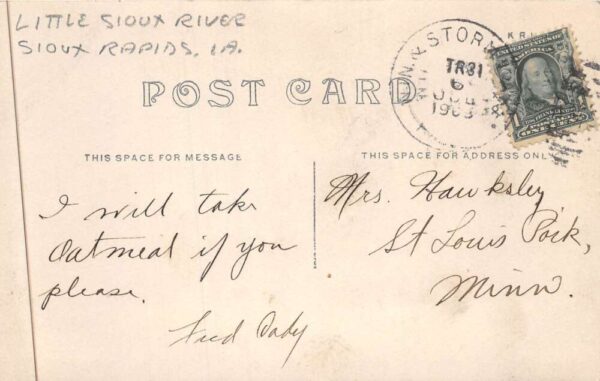 LITTLE SIOUX RIVER
SIOUX RAPIDS, IA.
POST CARD
& STORM
TR31
6
190
UNITED STATES OF
AMERICA
THIS SPACE FOR MESSAGE
THIS SPACE FOR ADDRESS ONLY
I will take
Oatmeal if you
please.
Mrs. Hawksley
St Louis Park,
Minn.